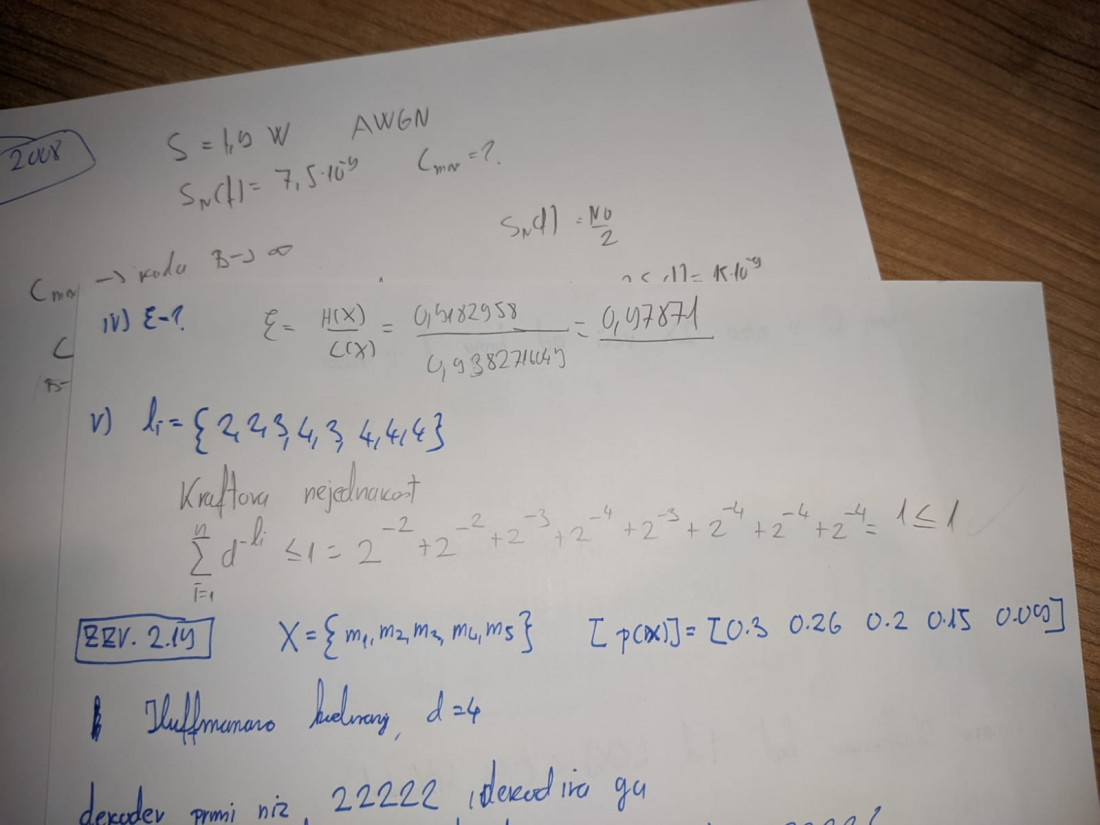 2008
S = 1,9 W AWGN
S_N(f) = 7,5·10⁻⁹ C_max = ?
S_N(f) = N0/2
C_max → kada B → ∞
= 15·10⁻⁹
C
B→
iv) ε - ? ε = H(X)/L(X) = 0,9182958/0,9382716049 = 0,97871
v) li = { 2, 2, 3, 4, 3, 4, 4, 4 }
Kraftova nejednakost
∑ i=1 n d^-li ≤ 1 = 2^-2 + 2^-2 + 2^-3 + 2^-4 + 2^-3 + 2^-4 + 2^-4 + 2^-4 = 1 ≤ 1
ZZV. 2.19 X = { m1, m2, m3, m4, m5 } [ p(x) ] = [ 0.3 0.26 0.2 0.15 0.09 ]
Huffmanovo kodiranj, d = 4
dekoder primi niz 22222, dekodira ga